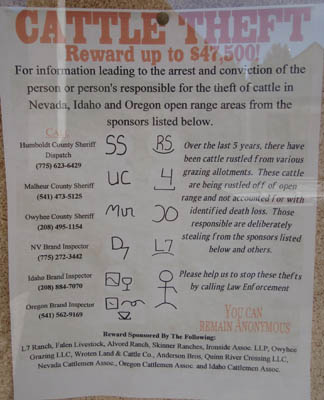 CATTLE THEFT
Reward up to $47,500!
For information leading to the arrest and conviction of the
person or person's responsible for the theft of cattle in
Nevada, Idaho and Oregon open range areas from the
sponsors listed below.
CALL
Humboldt County Sheriff
Dispatch
(775) 623-6429
Malheur County Sheriff
(541) 473-5125
Owyhee County Sheriff
(208) 495-1154
NV Brand Inspector
(775) 272-3442
Idaho Brand Inspector
(208) 884-7070
Oregon Brand Inspector
(541) 562-9169
SS RS
UC 4
L7
Over the last 5 years, there have
been cattle rustled from various
grazing allotments. These cattle
are being rustled off of open
range and not accounted for with
identified death loss. Those
responsible are deliberately
stealing from the sponsors listed
below and others.
Please help us to stop these thefts
by calling Law Enforcement
YOU CAN
REMAIN ANONYMOUS
Reward Sponsored By The Following:
L7 Ranch, Falen Livestock, Alvord Ranch, Skinner Ranches, Ironside Assoc. LLP, Owyhee
Grazing LLC, Wroten Land & Cattle Co., Anderson Bros, Quinn River Crossing LLC,
Nevada Cattlemen Assoc., Oregon Cattlemen Assoc. and Idaho Cattlemen Assoc.